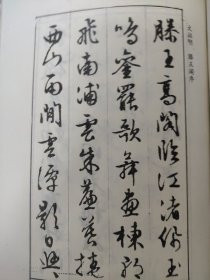 文徵明 滕王阁序
滕王高阁临江渚佩玉
鸣銮罢歌舞画栋朝
飞南浦云朱帘暮捲
西山雨闲云潭影日悠